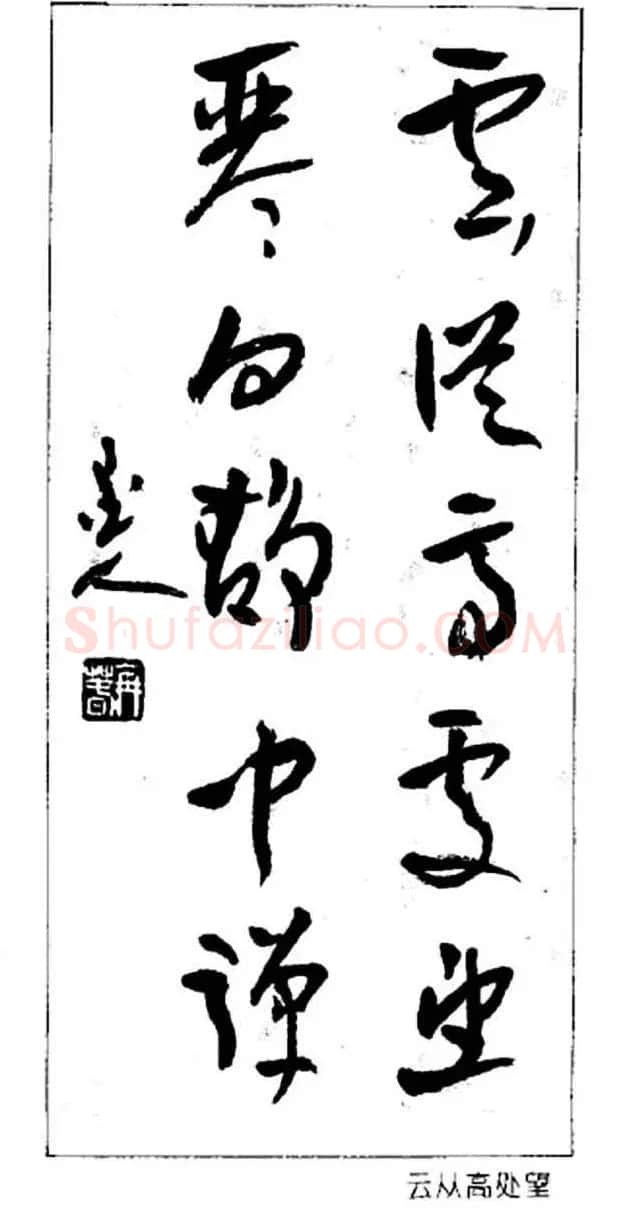 雲從高處望
琴向靜中彈
Shufaziliao.COM
云从高处望